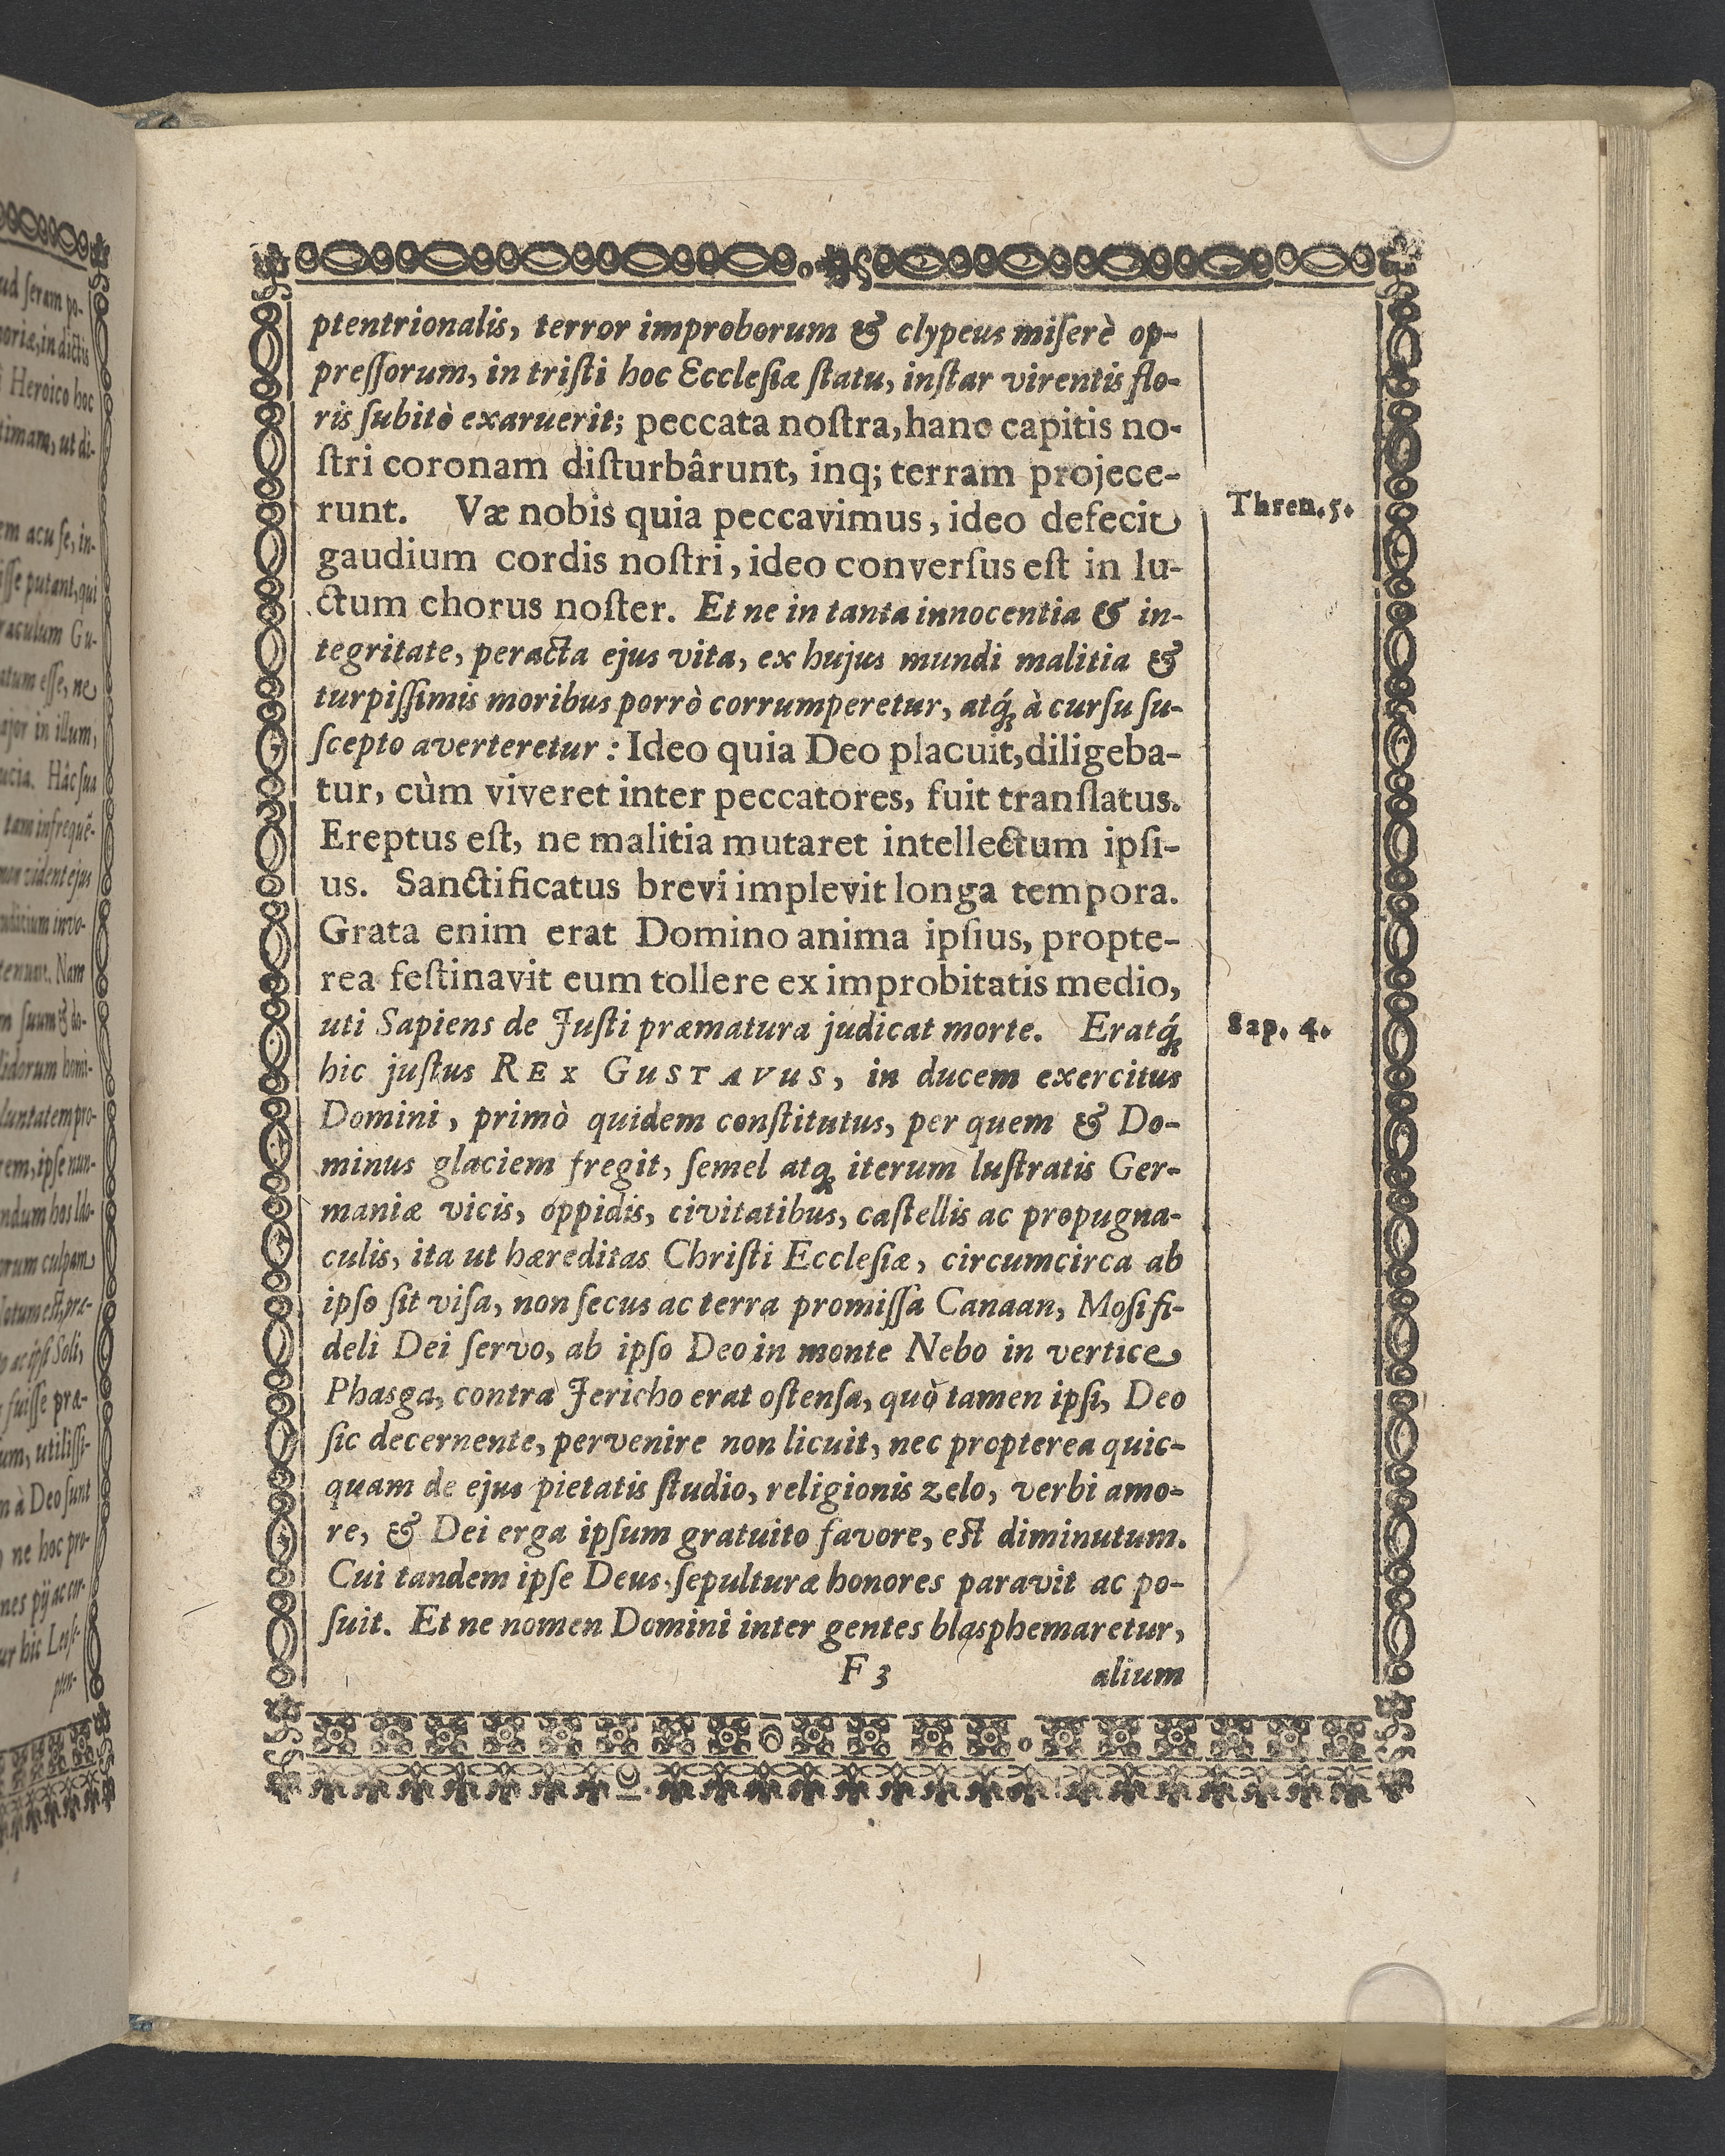 ptentrionalis, terror improborum & clypeus miſerè op-
preſſorum, in triſti hoc Eccleſiæ ſtatu, inſtar virentis flo-
ris ſubitò exaruerit; peccata noſtra, hanc capitis no-
ſtri coronam diſturbârunt, inq; terram projece-
runt. Væ nobis quia peccavimus, ideo defecit
Thren. 5.
gaudium cordis noſtri, ideo converſus eſt in lu-
ctum chorus noſter. Et ne in tanta innocentia & in-
tegritate, peracta ejus vita, ex hujus mundi malitia &
turpiſſimis moribus porrò corrumperetur, atq́; à curſu ſu-
ſcepto averteretur: Ideo quia Deo placuit, diligeba-
tur, cùm viveret inter peccatores, fuit tranſlatus.
Ereptus eſt, ne malitia mutaret intellectum ipſi-
us. Sanctificatus brevi implevit longa tempora.
Grata enim erat Domino anima ipſius, propte-
rea feſtinavit eum tollere ex improbitatis medio,
uti Sapiens de Juſti præmatura judicat morte. Eratq́;
Sap. 4.
hic juſtus REX GUSTAVUS, in ducem exercitus
Domini, primò quidem conſtitutus, per quem & Do-
minus glaciem fregit, ſemel atq; iterum luſtratis Ger-
maniæ vicis, oppidis, civitatibus, caſtellis ac propugna-
culis, ita ut hæreditas Chriſti Eccleſiæ, circumcirca ab
ipſo ſit viſa, non ſecus ac terra promiſſa Canaan, Moſi fi-
deli Dei ſervo, ab ipſo Deo in monte Nebo in vertice
Phasga, contra Jericho erat oſtenſa, quò tamen ipſi, Deo
ſic decernente, pervenire non licuit, nec propterea quic-
quam de ejus pietatis ſtudio, religionis zelo, verbi amo-
re, & Dei erga ipſum gratuito favore, eſt diminutum.
Cui tandem ipſe Deus ſepulturæ honores paravit ac po-
ſuit. Et ne nomen Domini inter gentes blasphemaretur,
F 3 alium